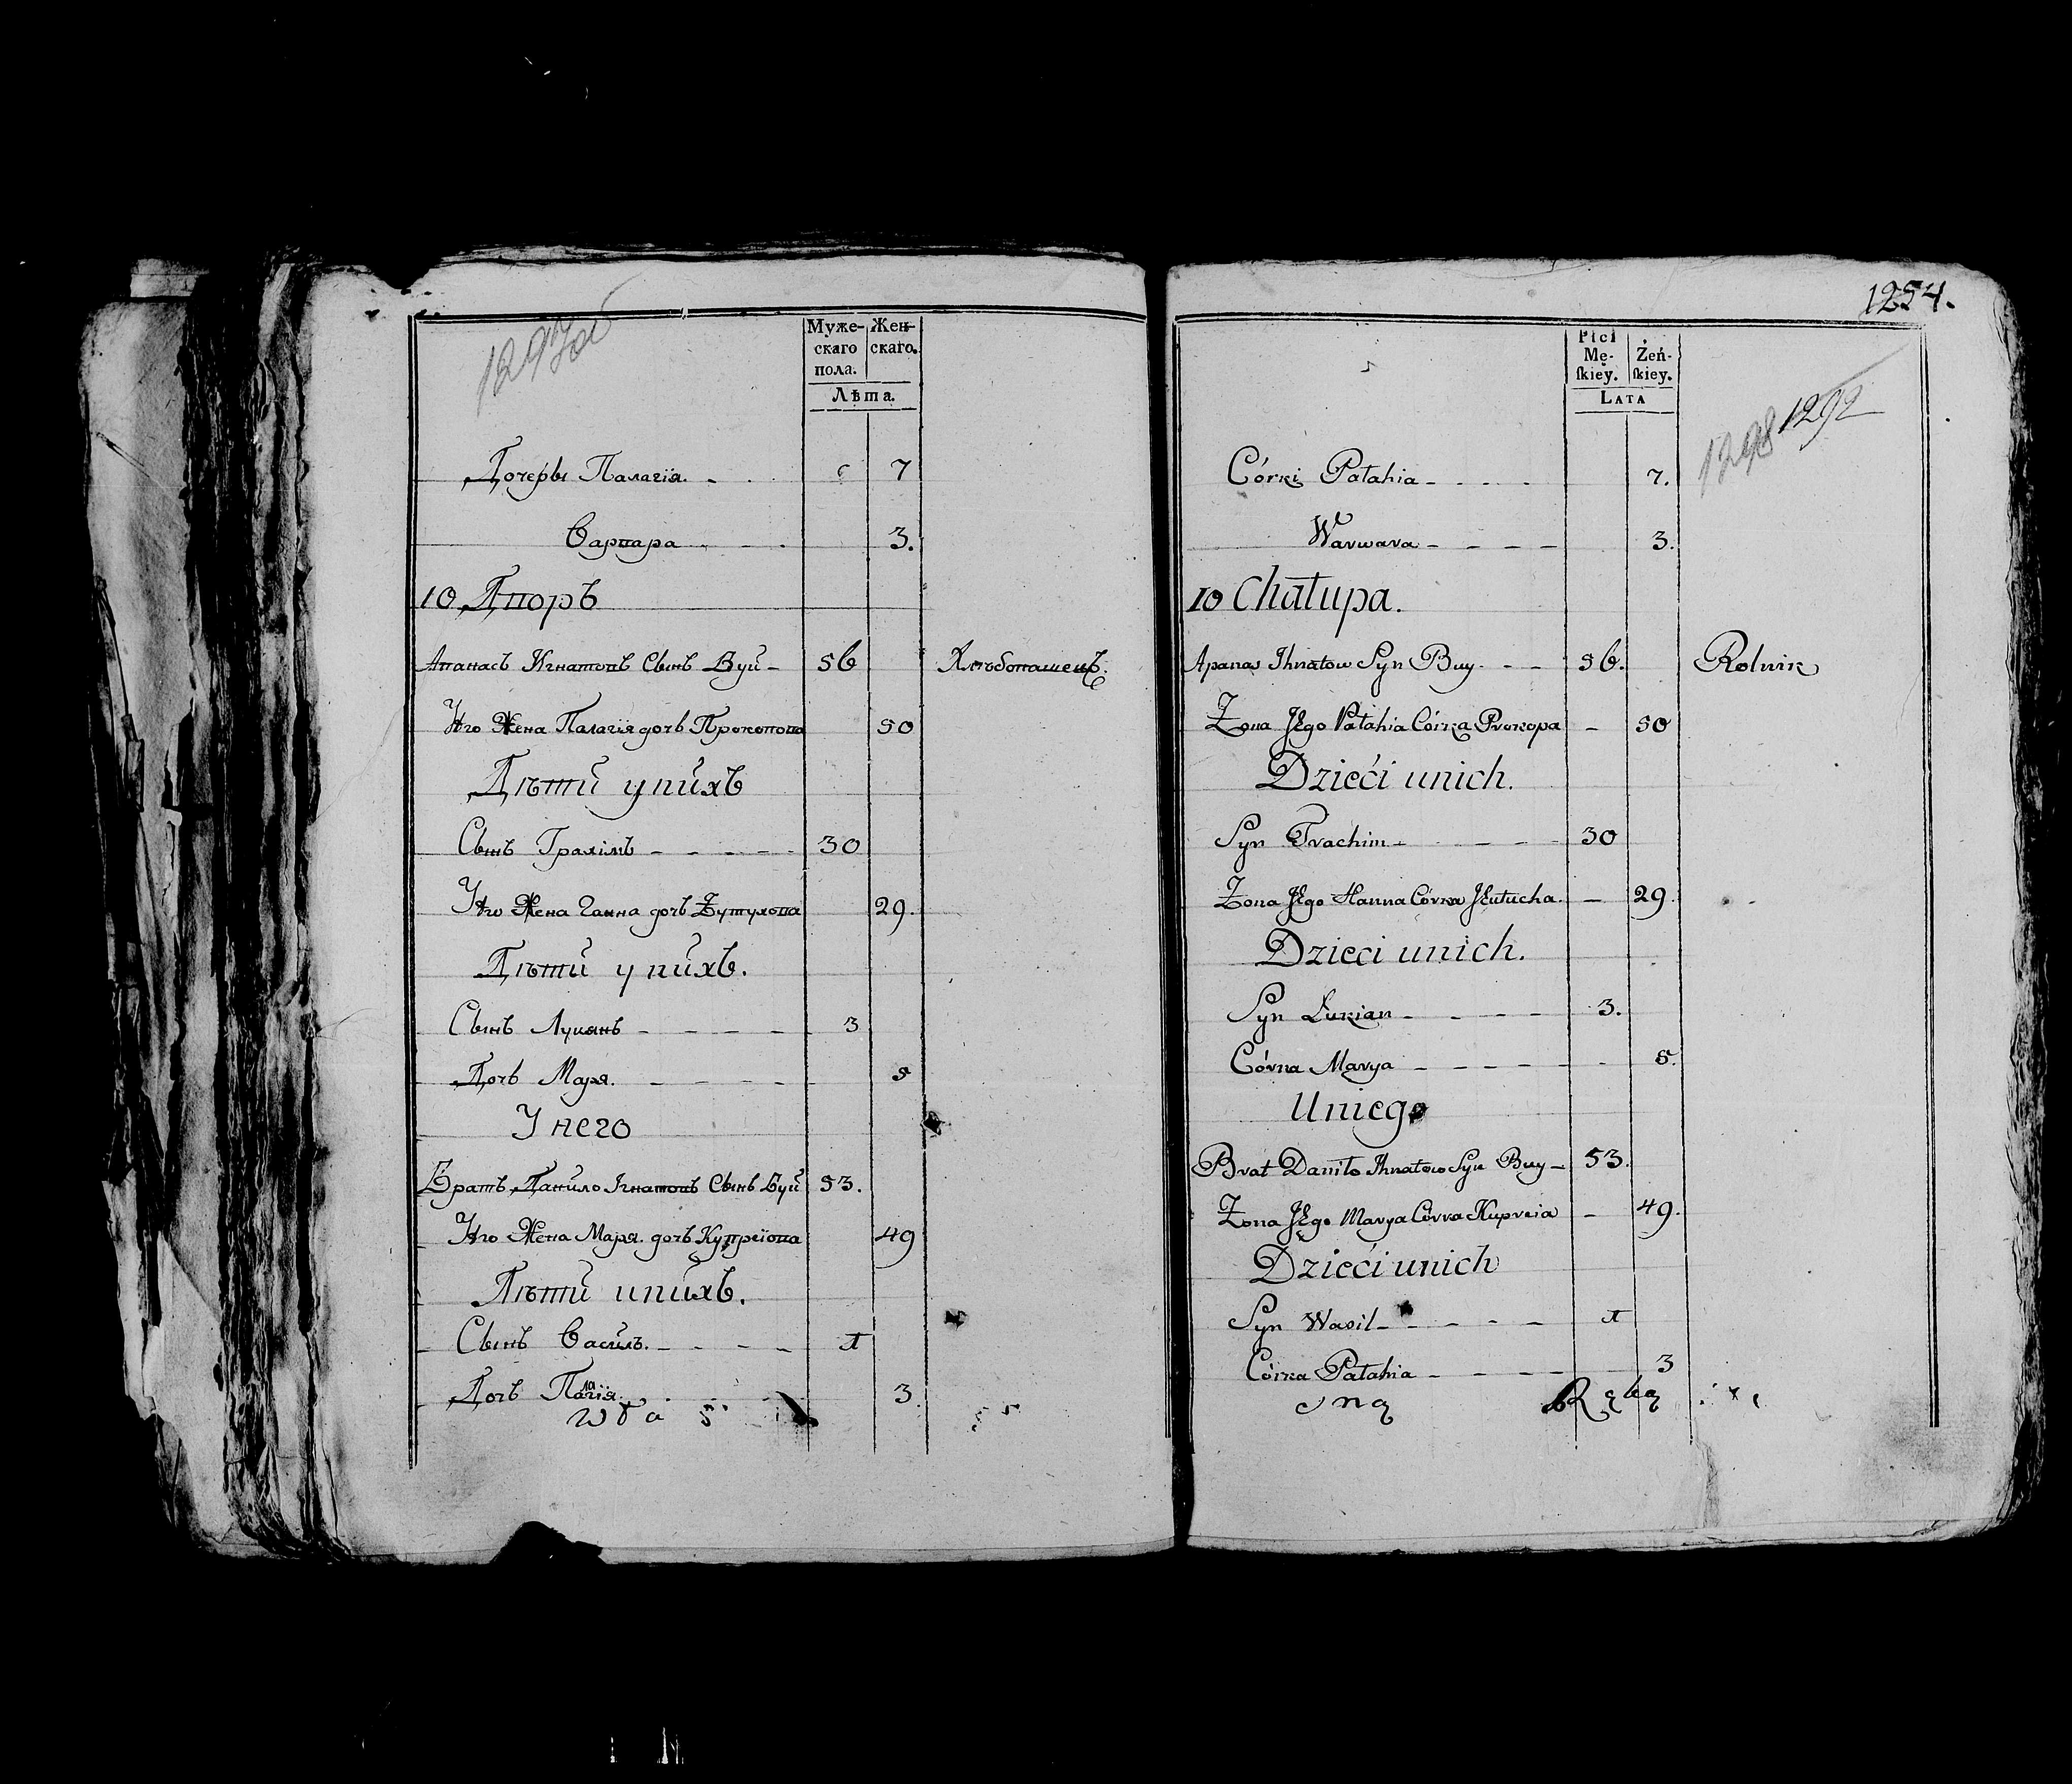 Муже-
скаго
пола.
Жен-
скаго.
Лѣта.
Дочеры Палагія. 7
Варвара 3.
10 Дворъ
Апанасъ Игнатовъ Сынъ Буй 56 Хлѣбопашецъ.
Его Жена Палагія дочь Прокопова 50
Дѣти у нихъ
Сынъ Трахімъ 30
Его Жена Ганна дочь 29.
Дѣти у нихъ.
Сынъ Лукянъ 3
Дочь Маря. 5
У него
Братъ Данило Ігнатовъ Сынъ Буй 53.
Его Жена Маря. дочь Купреіова 49
Дѣти у нихъ.
Сынъ Василъ. 1
Дочь Палагія. 3.
1254.
Płci
Mę-
ſkiey.
Żeń-
ſkiey.
LATA
1298 1292
Córki Pałahia 7.
Warwara 3.
10 Chałupa.
Apanas Ihnatow Syn Buy 56. Rolnik
Zona JEgo Pałahia Córka Prokopa 50
Dzieći unich.
Syn Trachim 30
Zona JEgo Hanna Córka JEutucha. 29.
Dzieci unich.
Syn Łukian 3.
Córka Marya 5.
Uniego
Brat Daniło Ihnatow Syn Buy 53.
Zona JEgo Marya Córka Kupreia 49.
Dzieći unich
Syn Wasil 1
Córka Pałahia 3